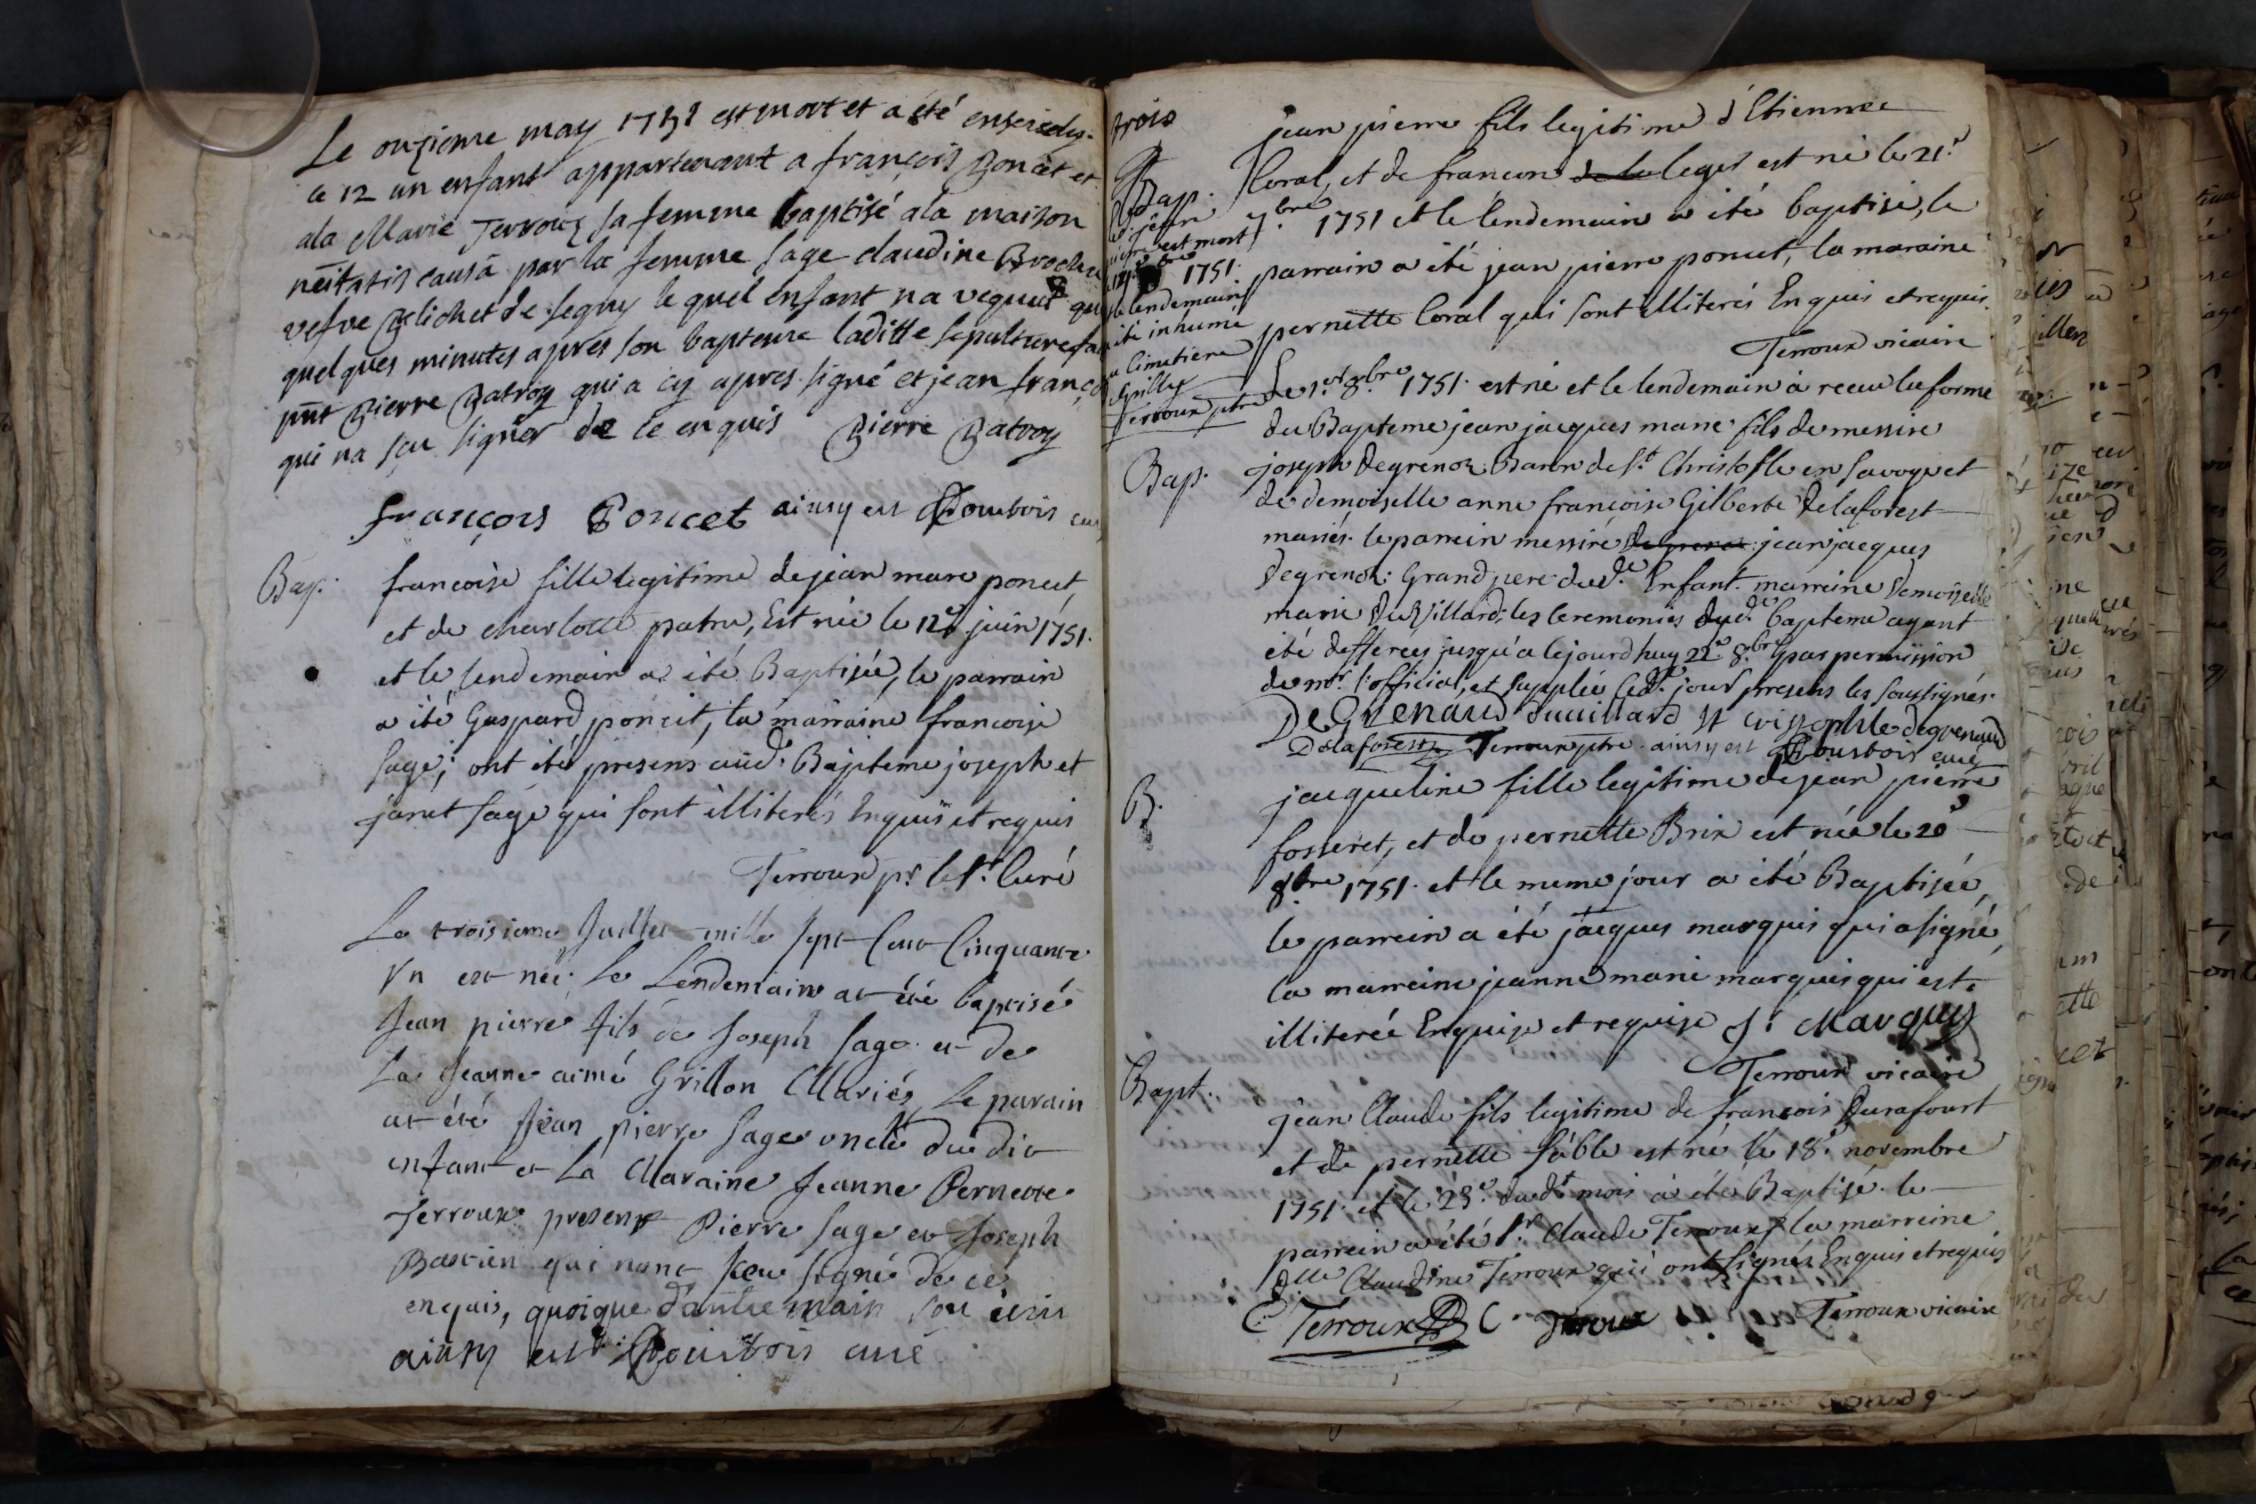 Le onzieme may 1751 est mort et a été enseveli
le 12 un enfant appartenant a françois Poncet et
a la Marie Terroux sa femme baptisé a la maison
par la femme sage claudine
vefve de segny le quel enfant na vequeu que
quelques minutes apres son bapteme laditte sepulture
pnt Pierre Patroy qui a cy apres signé et jean franço
qui na sçu signer de ce enquis Pierre Patroy
françois Poncet ainsy est Bourbois cu
Bap. francoise fille legitime de jean marc poncet,
et de charlotte patru, Est née le 12e juin 1751.
et le lendemain a été Baptisée, le parrain
a été Gaspard poncet, la marraine francoise
sage; ont été presens aud. Bapteme joseph et
janet sage qui sont illiterés Enquis et requis
Terroux pr le sr Curé
Le troisieme Juillet mille sept Cent Cinquante
Vn est né; Le Lendemain at été baptisé
Jean pierre fils de Joseph Sage et de
La Jeanne aimé Grillon Mariés, Le parain
at été Jean pierre Sage oncle du dit
enfant et La Maraine Jeanne Pernette
Terroux present Pierre Sage et Joseph
Bastien qui nont sceu signé de ce
enquis, quoique d'autre main soit écrit
ainsy est Bourbois curé
trois
Bap.
est mort
1751.
le lendemain
été inhumé
cimetiere
Grilly
Terroux ptre
jean pierre fils legitime d'Etienne
Coral, et de francon de la leger est né le 21e
7.bre 1751 et le lendemain a été baptisé, le
parrain a été jean pierre poncet, la maraine
pernette Coral qui sont illiterés Enquis et requis.
Terroux vicaire
Le 1er 8.bre 1751. est né et le lendemain à receu la forme
du Bapteme jean jacques marie fils de messire
Bap. joseph Degrenoz Baron de St Christofle en Savoye et
de demoiselle anne françoise Gilberte Delaforest
mariés. le parrein messire jean jacques
Degrenoz Grand pere dud. Enfant. marreine Demoiselle
marie Du Villard; les Ceremonies dud. bapteme ayant
été differees jusqu'a cejourd'huy 22e 8.bre par permission
de mr. l'official, et supplée led. jour presens les soussignés.
De Grenaud duvillard St cristophle degrenaud
Delaforest Terroux ptre ainsy est Bourbois curé
B. jacqueline fille legitime de jean pierre
fosseret, et de pernette Brix est née le 20e
8bre 1751. et le meme jour a été Baptisée,
le parrein a été jacques marquis qui a signé,
la marreine jeanne marie marquis qui est
illiterée Enquise et requise J. Marquis
Terroux vicaire
Bapt. jean Claude fils legitime de francois Durafourt
et de pernette sable est né le 18e novembre
1751. et le 23e dudt mois a été Baptisé. le
parrein a été sr Claude Terroux, la marreine
dlle Claudine Terroux qui ont signés Enquis et requis
C. Terroux C. Terroux Terroux vicaire